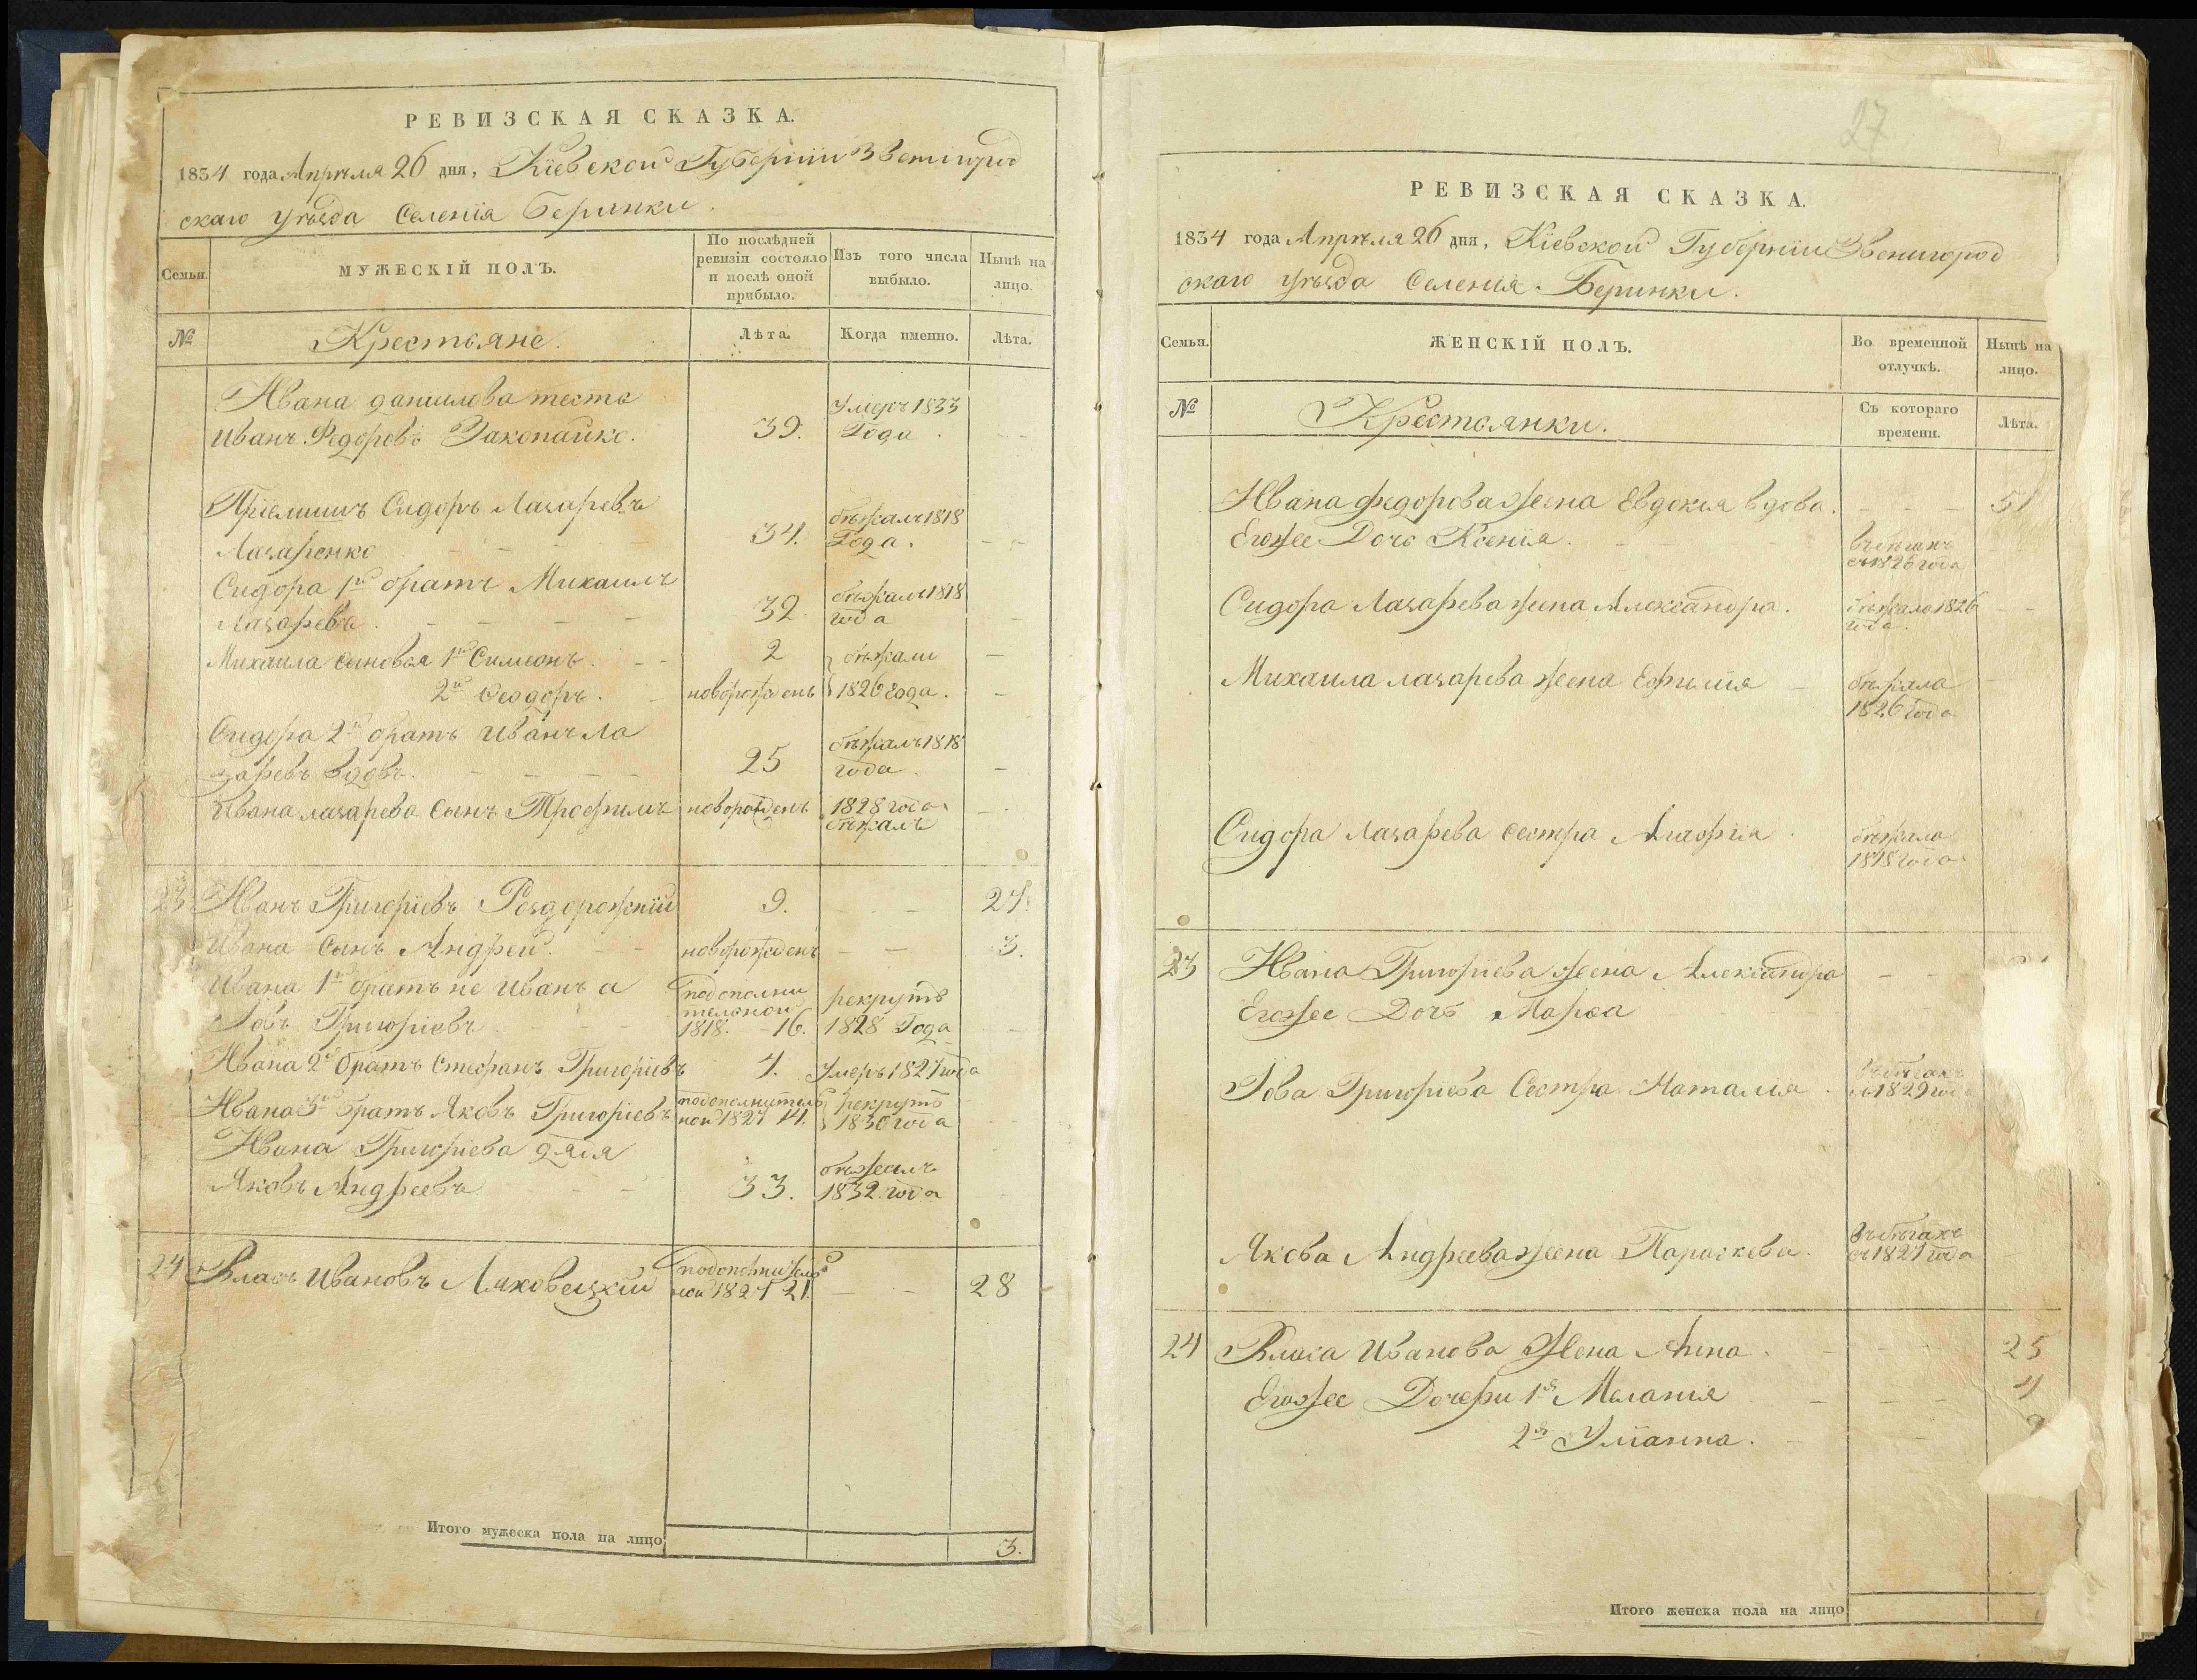 РЕВИЗСКАЯ СКАЗКА.
1834 года Апрѣля 26 дня, Кіевской Губерніи Звенигород
скаго уѣзда Селенія Беринки.
Семьи.
МУЖЕСКІЙ ПОЛЪ.
По послѣдней ревизіи состояло и послѣ оной прибыло.
Изъ того числа выбыло.
Нынѣ на лицо.
№
Крестьяне.
Лѣта.
Когда именно.
Лѣта.
Ивана данилова тесть
Умеръ 1833
Иванъ Федоровъ Закопайко. 39. Года.
Пріемышъ Сидоръ Лазаревъ
бѣжалъ 1818
Лазаренко 34. Года.
Сидора 1й братъ Михаилъ
бѣжалъ 1818
Лазаревъ. 32 года
Михаила сыновья 1й Симеонъ. 2 бѣжали
2й Феодоръ. новорожденъ 1826 Года.
Сидора 2й братъ Иванъ Ла
бѣжалъ 1818
заревъ вдовъ. 25 года.
Ивана лазарева Сынъ Трофимъ новорожденъ 1828 года
бѣжалъ
23 Иванъ Григоріевъ Роздорожній 9. 24.
Ивана Сынъ Андрей. новорожденъ 3.
Ивана 1й братъ не Иванъ а подополни рекрутъ
тельной
Іовъ Григоріевъ 1818. 16. 1828 Года
Ивана 2й братъ Стефанъ Григоріевъ 4. Умеръ 1827 года
Ивана 3й братъ Яковъ Григоріевъ подополнитель рекрутъ
ной 1827 14. 1830 года
Ивана Григоріева дядя
бѣжалъ
Яковъ Андреевъ 33. 1832. года
24 Власъ Ивановъ Ляховецкій подополнитель
ной 1827 21. 28
Итого мужеска пола на лицо 3.
27
РЕВИЗСКАЯ СКАЗКА.
1834 года Апрѣля 26 дня, Кіевской Губерніи Звенигород
скаго уѣзда Селенія Беринки.
Семьи.
ЖЕНСКІЙ ПОЛЪ.
Во временной отлучкѣ.
Нынѣ на лицо.
№
Крестьянки.
Съ котораго времени.
Лѣта.
Ивана федорова жена Евдокія вдова. 51
Егожъ Дочь Ксенія. въ бѣгахъ
съ 1826 года
Сидора Лазарева жена Александра. бѣжала 1826
года.
Михаила лазарева жена Ефимія бѣжала
1826 года
Сидора Лазарева сестра Агафія бѣжала
1818 года
23 Ивана Григоріева жена Александра
Егожъ Дочь Марфа
Іова Григорьева Сестра Наталія. въ бѣгахъ
съ 1829 года
Якова Андреева жена Параскева. въ бѣгахъ
съ 1827 года
24 Власа Иванова Жена Анна. 25
Егожъ Дочери 1я Меланія 4
2я Уліанна.
Итого женска пола на лицо